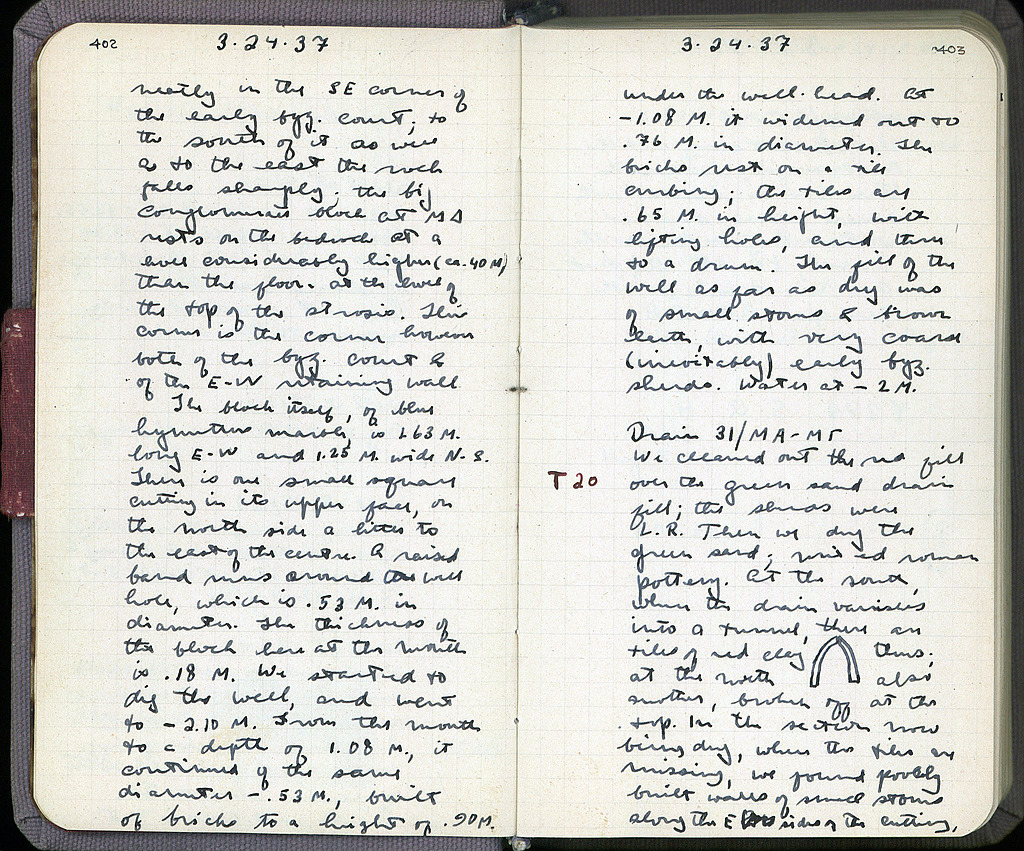 402
3.24.37
neatly in the SE corner of
the early byz. court; to
the south of it as well
as to the east the rock
falls sharply. The big
conglomerate block at MΔ
rests on the bedrock at a
level considerably higher (ca. 40 M)
than the floor. at the level of
the top of the strosis. This
corner is the corner however
both of the byz. court &
of the E-W retaining wall
The block itself, of blue
hymettus marble, is 1.63 M.
long E-W and 1.25 M. wide N-S.
There is one small square
cutting in its upper face, on
the north side a little to
the east of the centre. A raised
band runs around the well
hole, which is .53 M. in
diameter. The thickness of
the block here at the mouth
is .18 M. We started to
dig the well, and went
to -2.10 M. From the mouth
to a depth of 1.08 M., it
continued of the same
diameter - .53 M., built
of bricks to a height of .90 M.
403
3.24.37
under the well-head. At
-1.08 M. it widened out to
.76 M. in diameter. The
bricks rest on a tile
curbing; the tiles are
.65 M. in height, with
lifting holes, and three
to a drum. The fill of the
well as far as dug was
of small stones & brown
earth, with very coarse
(inevitably) early byz.
sherds. Water at -2 M.
Drain 31/MA-MΓ
We cleaned out the red fill
T 20
over the green sand drain
fill; the sherds were
L.R. Then we dug the
green sand; mixed roman
pottery. At the south,
where the drain vanishes
into a tunnel, there are
tiles of red clay thus;
at the north also
another, broken off at the
top. In the section now
being dug, where the tiles are
missing, we found poorly
built walls of small stones
along the E sides of the cutting,